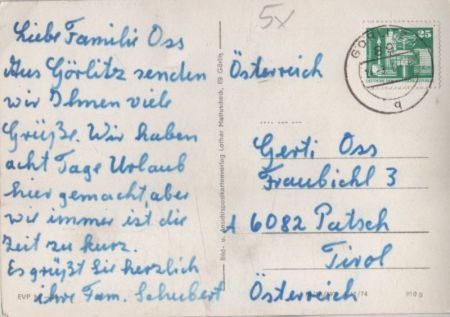 5x
Liebe Familie Oss
Aus Görlitz senden
wir Ihnen viele
Grüße. Wir haben
acht Tage Urlaub
hier gemacht, aber
wie immer ist die
Zeit zu kurz.
Es grüßt Sie herzlich
ihre Fam. Schubert
Bild- u. Ansichtspostkartenverlag Lothar Mattuscheck, 89 Görlitz
25
GÖR
q
Österreich
Gerti Oss
Fraubichl 3
A 6082 Patsch
Tirol
Österreich
EVP
/74
910 g